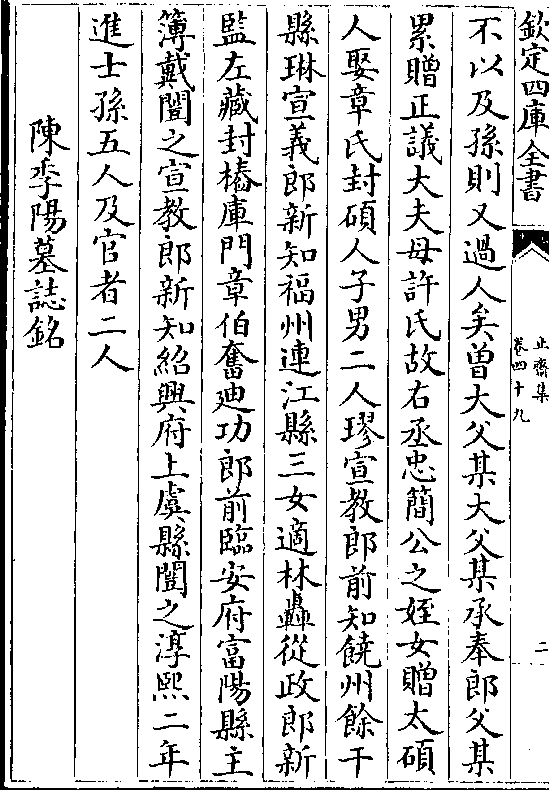 欽定四庫全書
止齋集
卷四十九
二
不以及孫則又過人矣曽大父某大父某承奉郎父某
累贈正議大夫母許氏故右丞忠簡公之姪女贈太碩
人娶章氏封碩人子男二人璆宣教郎前知饒州餘干
縣琳宣義郎新知福州連江縣三女適林轟從政郎新
監左藏封樁庫門章伯奮廸功郎前臨安府富陽縣主
簿戴闓之宣教郎新知紹興府上虞縣闓之淳熙二年
進士孫五人及官者二人
陳季陽墓誌銘